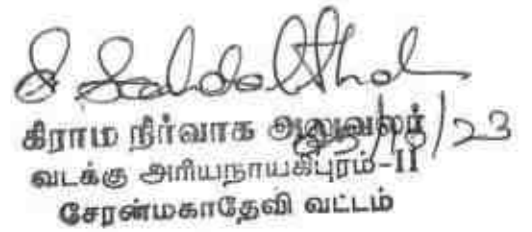 கிராம நிர்வாக அலுவலர்
வடக்கு அரியநாயகிபுரம்-II
சேரன்மகாதேவி வட்டம்